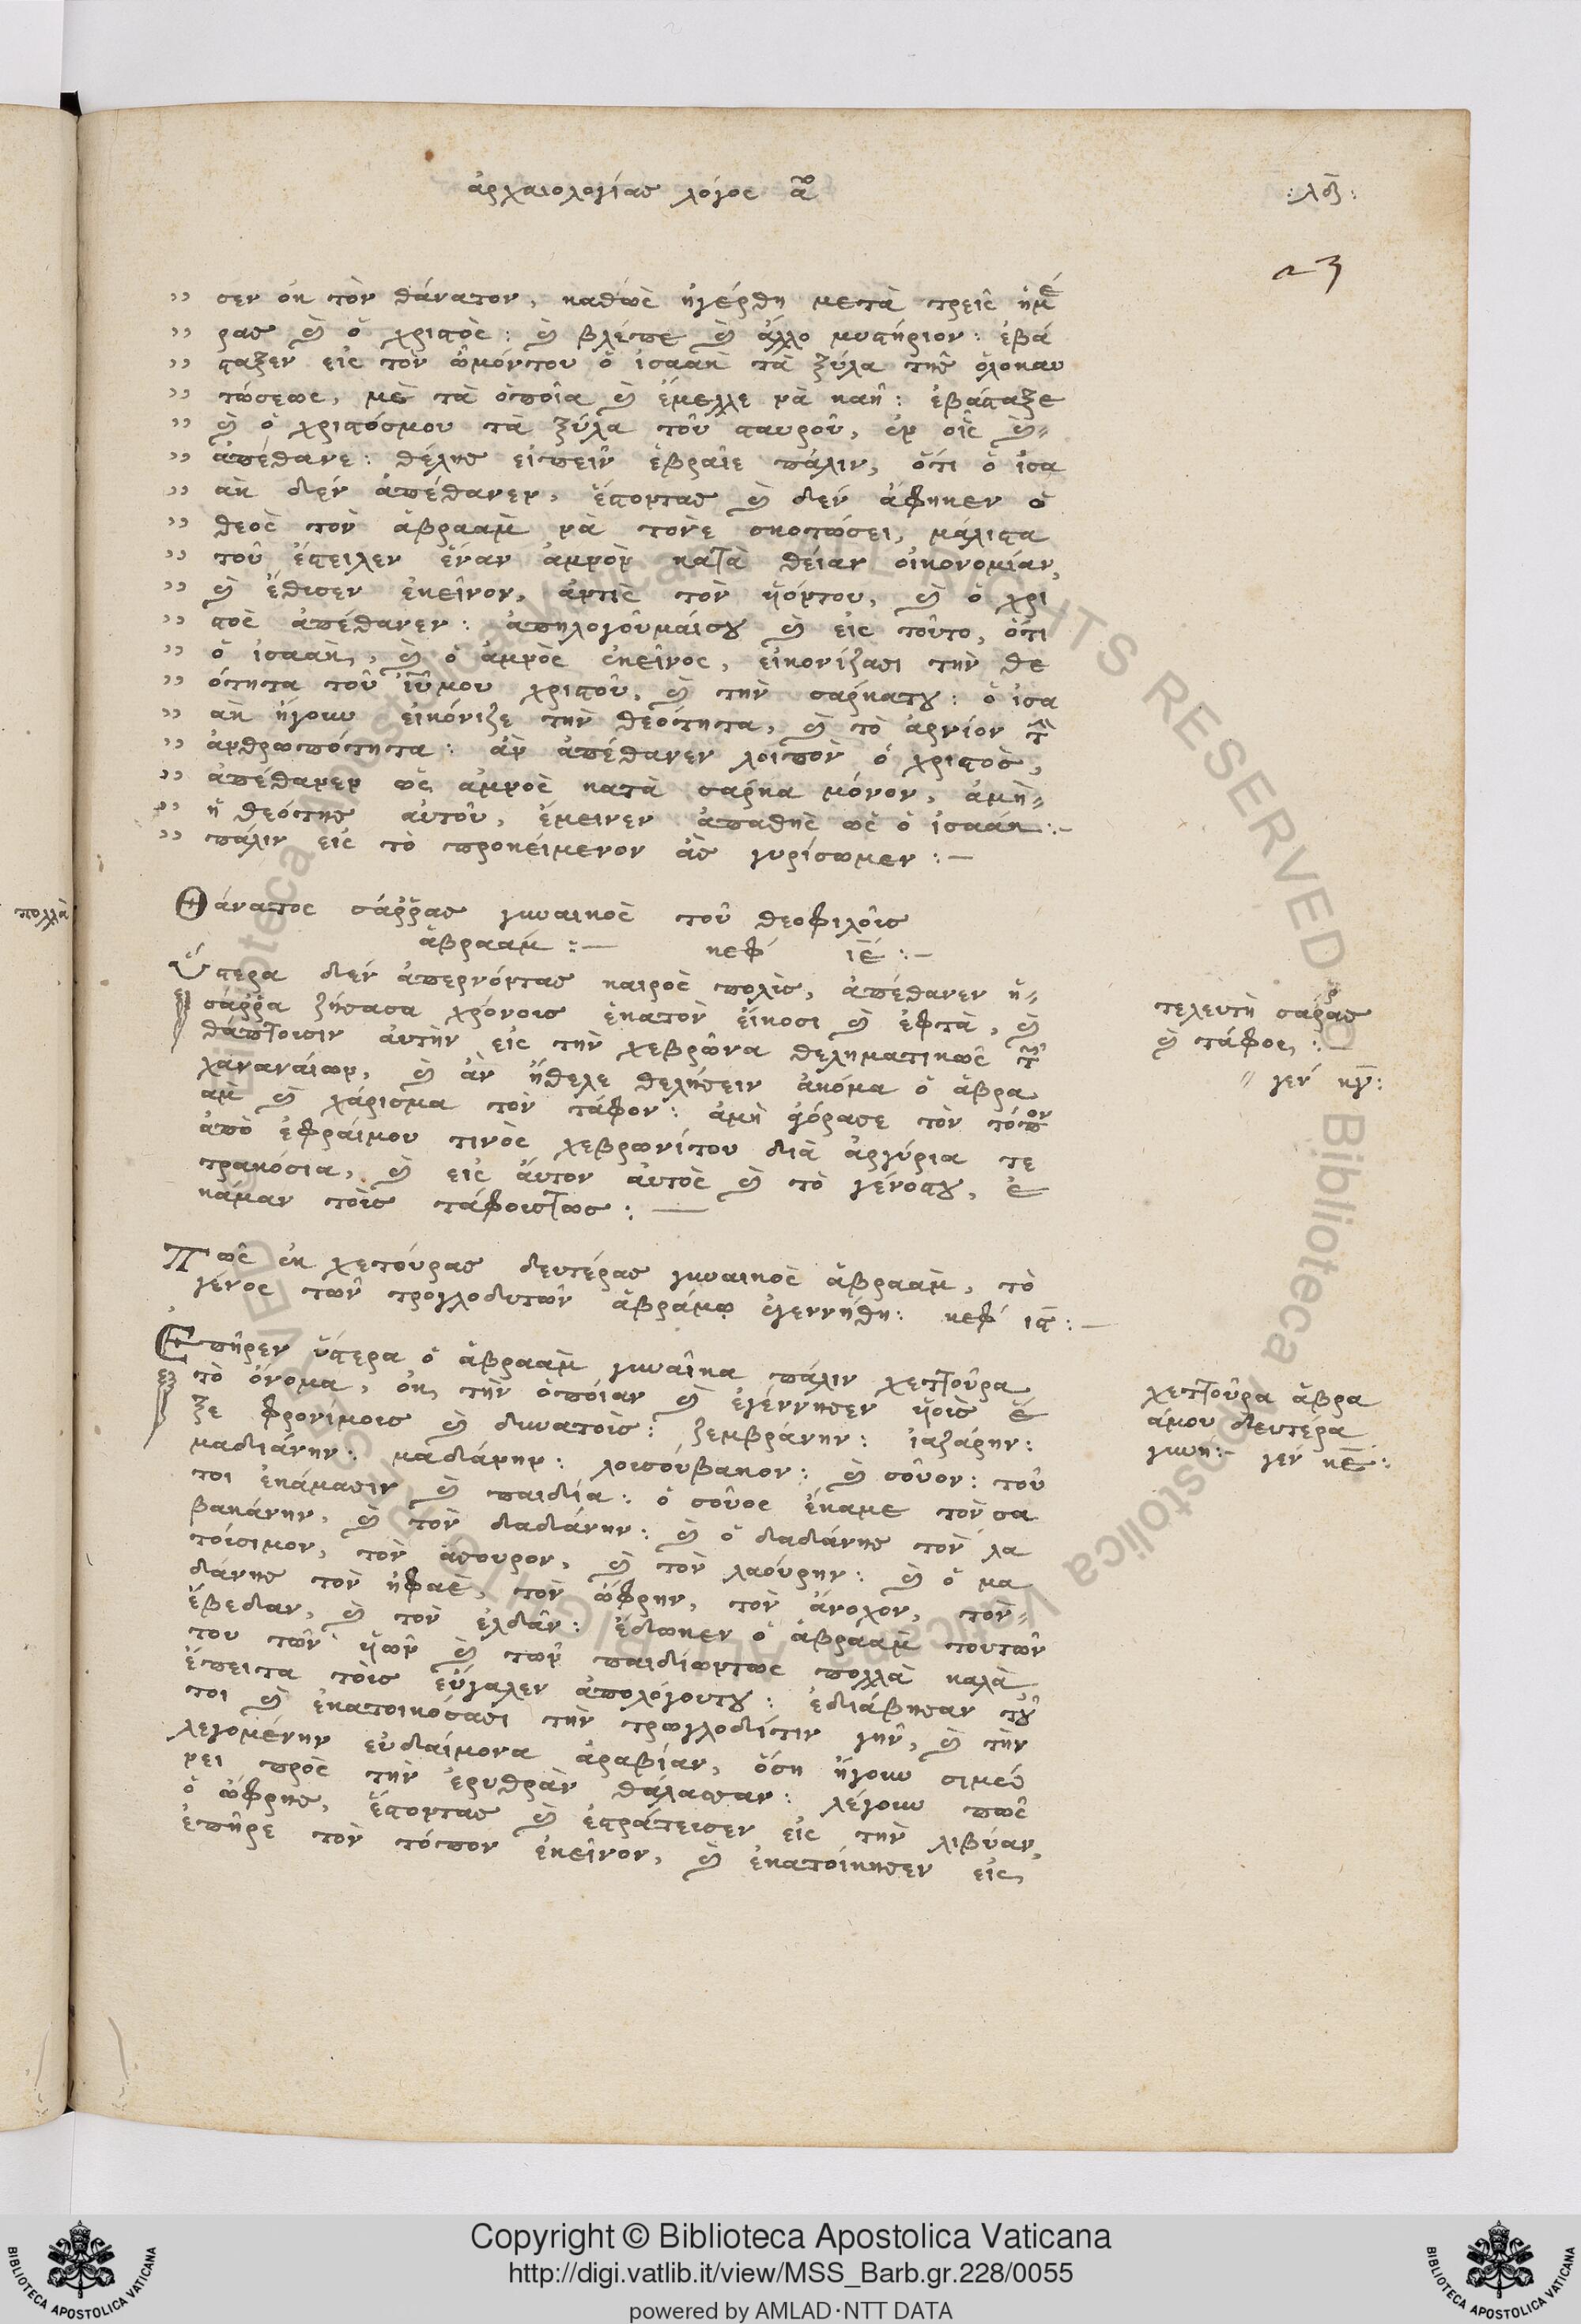 ἀρχαιολογίας λόγος α^ος
:λζ:
23
σεν ἐκ τὸν θάνατον, καθὼς ἠγέρθη μετὰ τρεῖς ἡμέ
ρας καὶ ὁ χριστὸς: καὶ βλέπε καὶ ἄλλο μυστήριον: ἐβά
σταξεν εἰς τὸν ὦμόντου ὁ ἰσαὰκ τὰ ξύλα τῆς ὁλοκαυ
τώσεως, μὲ τὰ ὁποῖα καὶ ἔμελλε νὰ καῆ: ἐβάσταξε
καὶ ὁ χριστόσμου τὰ ξύλα τοῦ σταυροῦ, ἐν οἷς καὶ
ἀπέθανε: θέλης εἰπεῖν ἑβραῖε πάλιν, ὅτι ὁ ἰσα
ὰκ δὲν ἀπέθανεν, ἔστοντας καὶ δὲν ἄφηκεν ὁ
θεὸς τὸν ἀβραὰμ νὰ τόνε σκοτώσει, μάλιστα
τοῦ ἔστειλεν ἕναν ἀμνὸν κατὰ θείαν οἰκονομίαν,
καὶ ἔθισεν ἐκεῖνον, ἀντὶς τὸν ὑόντου, καὶ ὁ χρι
στὸς ἀπέθανεν: ἀπηλογοῦμαίσου καὶ εἰς τοῦτο, ὅτι
ὁ ἰσαὰκ, καὶ ὁ ἀμνὸς ἐκεῖνος, εἰκονίζασι τὴν θε
ότητα τοῦ ιῦμου χριστοῦ, καὶ τὴν σάρκατου: ὁ ἰσα
ὰκ ἤγουν εἰκόνιζε τὴν θεότητα, καὶ τὸ ἀρνίον τὴν
ἀνθρωπότητα: ἂν ἀπέθανεν λοιπὸν ὁ χριστὸς,
ἀπέθανεν ὡς ἀμνὸς κατὰ σάρκα μόνον, ἀμὴ
ἡ θεότης αὐτοῦ, ἔμεινεν ἀπαθὴς ὡς ὁ ἰσαάκ:—
πάλιν εἰς τὸ προκείμενον ἂς γυρίσωμεν:—
πολλὰ
Θάνατος σάρρας γυναικὸς τοῦ θεοφιλοῖς
ἀβραάμ:— κεφ ιε:—
Ὕστερα δὲν ἀπερνόντας καιρὸς πολὶς, ἀπέθανεν ἡ
σάρρα ζήσασα χρόνοις ἑκατὸν εἴκοσι καὶ ἐφτὰ, καὶ
θάπτοισιν αὐτὴν εἰς τὴν χεβρῶνα θεληματικῶς τῶν
χαναναίων, καὶ ἂν ἤθελε θελήσειν ἀκόμα ὁ ἀβρα
ὰμ καὶ χάρισμα τὸν τάφον: ἀμὴ ἀγόρασε τὸν τόπον
ἀπὸ ἐφραίμου τινὸς χεβρωνίτου διὰ ἀργύρια τε
τρακόσια, καὶ εἰς αὔτον αὐτὸς καὶ τὸ γένοςτου, ἐ
κάμαν τοὶς τάφοιςτως:—
τελευτὴ σάρρας
καὶ τάφος:—
γεν κγ:
Πῶς ἐκ χετούρας δευτέρας γυναικὸς ἀβραὰμ, τὸ
γένος τῶν τρογλοδυτῶν ἀβράμω ἐγεννήθη: κεφ ις:—
Ἐπῆρεν ὕστερα ὁ ἀβραὰμ γυναῖκα πάλιν χεττοῦρα
τὸ ὄνομα, ἐκ τὴν ὁποίαν καὶ ἐγέννησεν ὑοὶς ἕ
ξε φρονίμοις καὶ δυνατοὶς: ζεμβράνην: ἰαζάρην:
μαδιάνην: μαδάνην: λοισούβακον: καὶ σοῦον: τοῦ
τοι ἐκάμασιν καὶ παιδία: ὁ σοῦος ἔκαμε τὸν σα
βακάνην, καὶ τὸν δαδάνην: καὶ ὁ δαδάνης τὸν λα
τοίσιμον, τὸν ἄσσουρον, καὶ τὸν λαούρην: καὶ ὁ μα
δάνης τὸν ἠφαὲ, τὸν ὤφρην, τὸν ἄνοχον, τὸν
ἔβεδαν, καὶ τὸν ἐλδᾶν: ἔδωκεν ὁ ἀβραὰμ τουτῶν
του τῶν ὑῶν καὶ τῶν παιδίωντως πολλὰ καλὰ,
ἔπειτα τοὶς εὔγαλεν ἀπολόγουτου: ἐδιάβησαν τοῦ
τοι καὶ ἐκατοικόσασι τὴν τρωγλοδίτιν γῆν, καὶ τὴν
λεγομένην εὐδαίμονα ἀραβίαν, ὅση ἤγουν σιμώ
νει πρὸς τὴν ἐρυθρὰν θάλασσαν: λέγουν πῶς
ὁ ὤφρης, ἔστοντας καὶ ἐστράτεισεν εἰς τὴν λιβύαν,
ἐπῆρε τὸν τόπον ἐκεῖνον, καὶ ἐκατοίκησεν εἰς
χεττοῦρα ἀβρα
άμου δευτέρα
γυνή:— γεν κε:
Copyright © Biblioteca Apostolica Vaticana
http://digi.vatlib.it/view/MSS_Barb.gr.228/0055
powered by AMLAD·NTT DATA
BIBLIOTECA APOSTOLICA VATICANA
BIBLIOTECA APOSTOLICA VATICANA